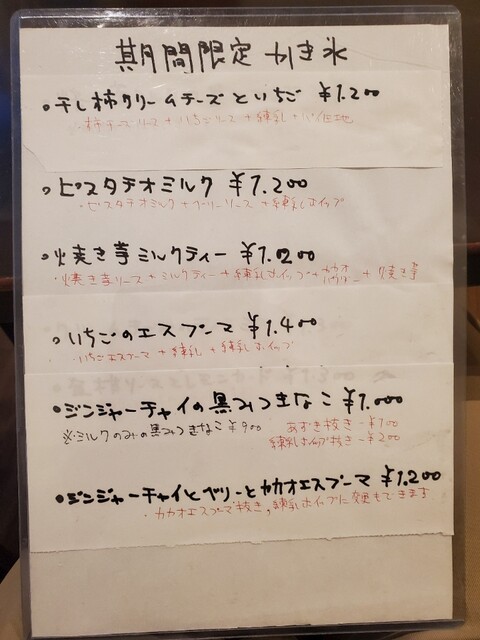 期間限定 かき氷
・干し柿クリームチーズといちご ¥1.200
・柿チーズソース + いちごソース + 練乳 + パイ生地
・ピスタチオミルク ¥1.200
・ピスタチオミルク + ベリーソース + 練乳ホイップ
・焼き芋ミルクティー ¥1.000
・焼き芋ソース + ミルクティー + 練乳ホイップ + カカオパウダー + 焼き芋
・いちごのエスプーマ ¥1.400
・いちごエスプーマ + 練乳 + 練乳ホイップ
・ジンジャーチャイの黒みつきなこ ¥1.000
※ミルクのみの黒みつきなこ ¥900 あずき抜き -¥100
練乳ホイップ抜き -¥200
・ジンジャーチャイとベリーとカカオエスプーマ ¥1.200
・カカオエスプーマ抜き,練乳ホイップに変更もできます